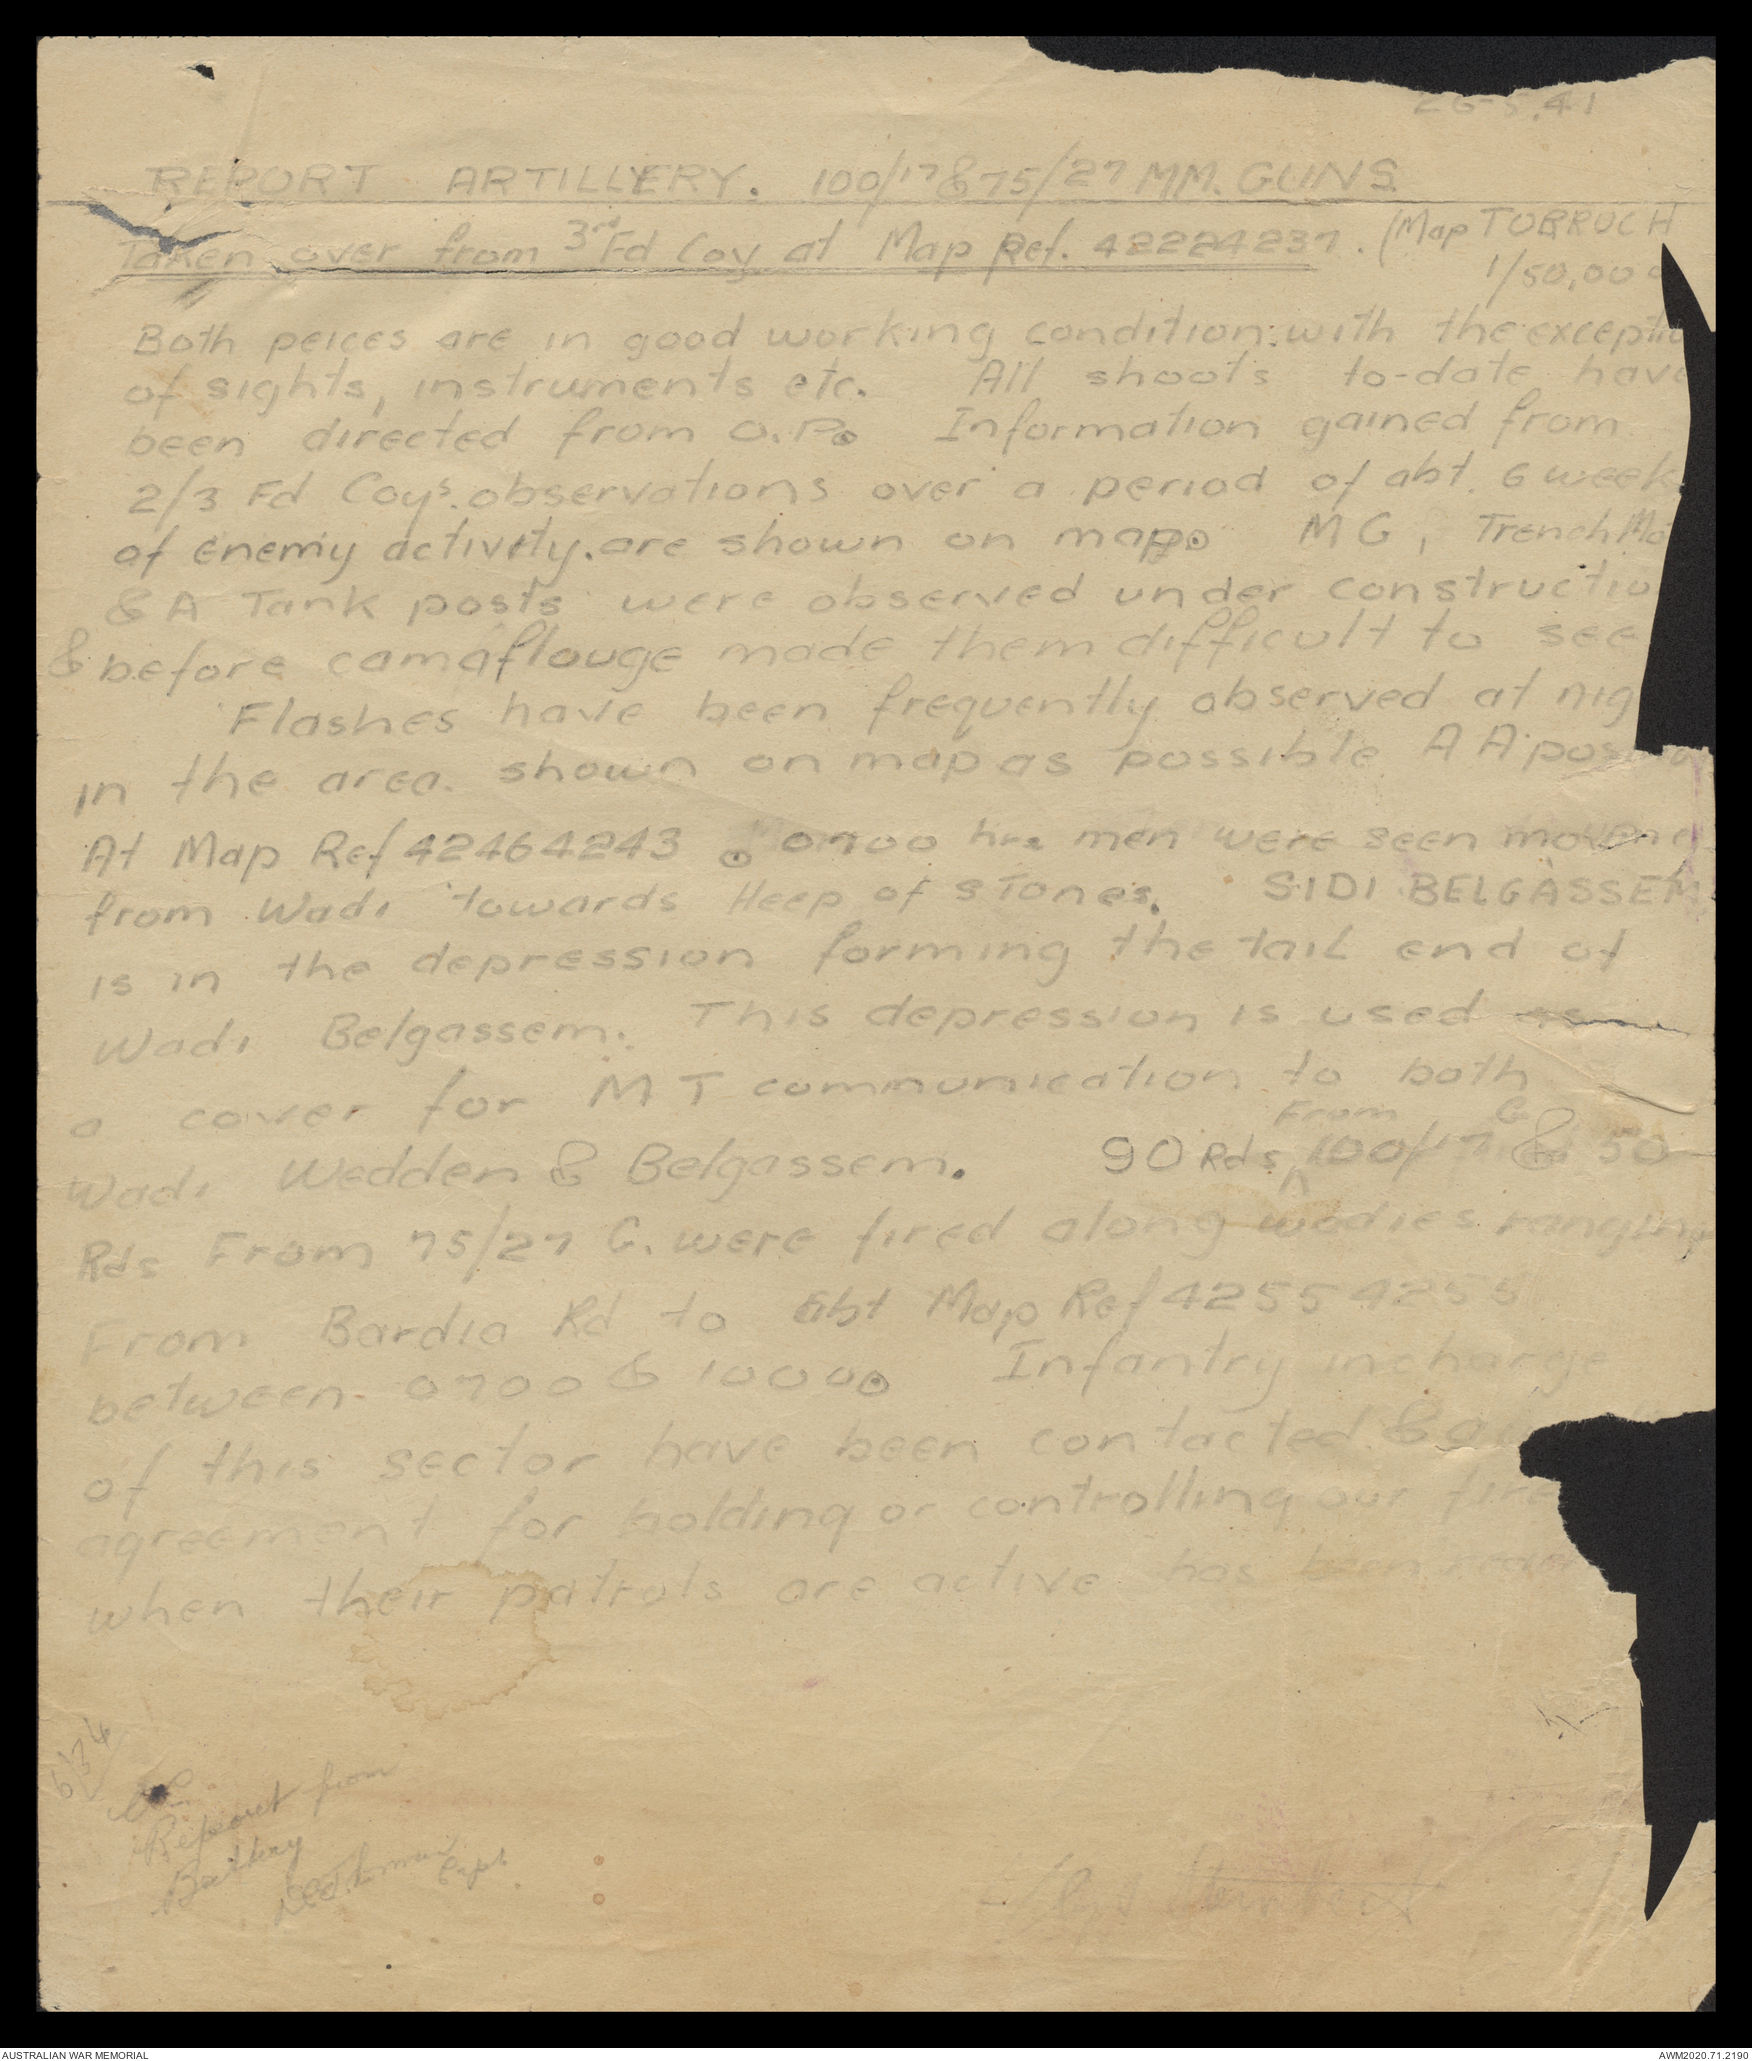 26-5.41
REPORT ARTILLERY. 100/17 & 75/27 MM. GUNS.
Taken over from 3rd Fd Coy at Map Ref. 42224237. (Map TOBRUCH
1/50,000
Both peices are in good working condition: with the exceptio
of sights, instruments etc. All shoots to-date have
been directed from O.P. Information gained from
2/3 Fd Coys. observations over a period of abt. 6 week
of enemy activity. are shown on map. M G, Trench Mo
& A Tank posts were observed under constructio
& before camaflouge made them difficult to see
Flashes have been frequently observed at nig
in the area. shown on map as possible A A pos
At Map Ref 42464243. 0700 hrs men were seen moving
from Wadi towards Heep of stones. SIDI BELGASSEM
is in the depression forming the tail end of
Wadi Belgassem. This depression is used as
a cover for M T communication to both
From G
Wadi Wedden & Belgassem. 90 Rds 100/17 & 50
Rds From 75/27 G. were fired along wadies ranging
From Bardia Rd to abt Map Ref 42554255
between 0700 & 1000. Infantry incharge
of this sector have been contacted &
agreement for holding or controlling our fire
when their patrols are active has been
6/34
Report from
Battery
Capt.